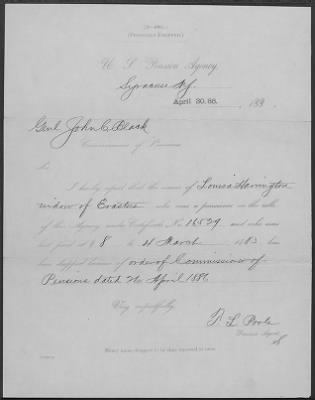 (PENSIONER DROPPED)
U. S. Pension Agency,
Syracuse N.Y.
April 30. 86. 188 .
Genl John C. Black
Commissioner of Pensions
Sir:
I hereby report that the name of Louisa Harrington
widow of Erastus who was a pensioner on the rolls
of this Agency under Certificate No. 16529 and who was
last paid at $ 8 to 4 March 1883 has
been dropped because of order of Commissioner of
Pensions dated 26 April 1886
Very respectfully,
T. L. Poole
Pension Agent